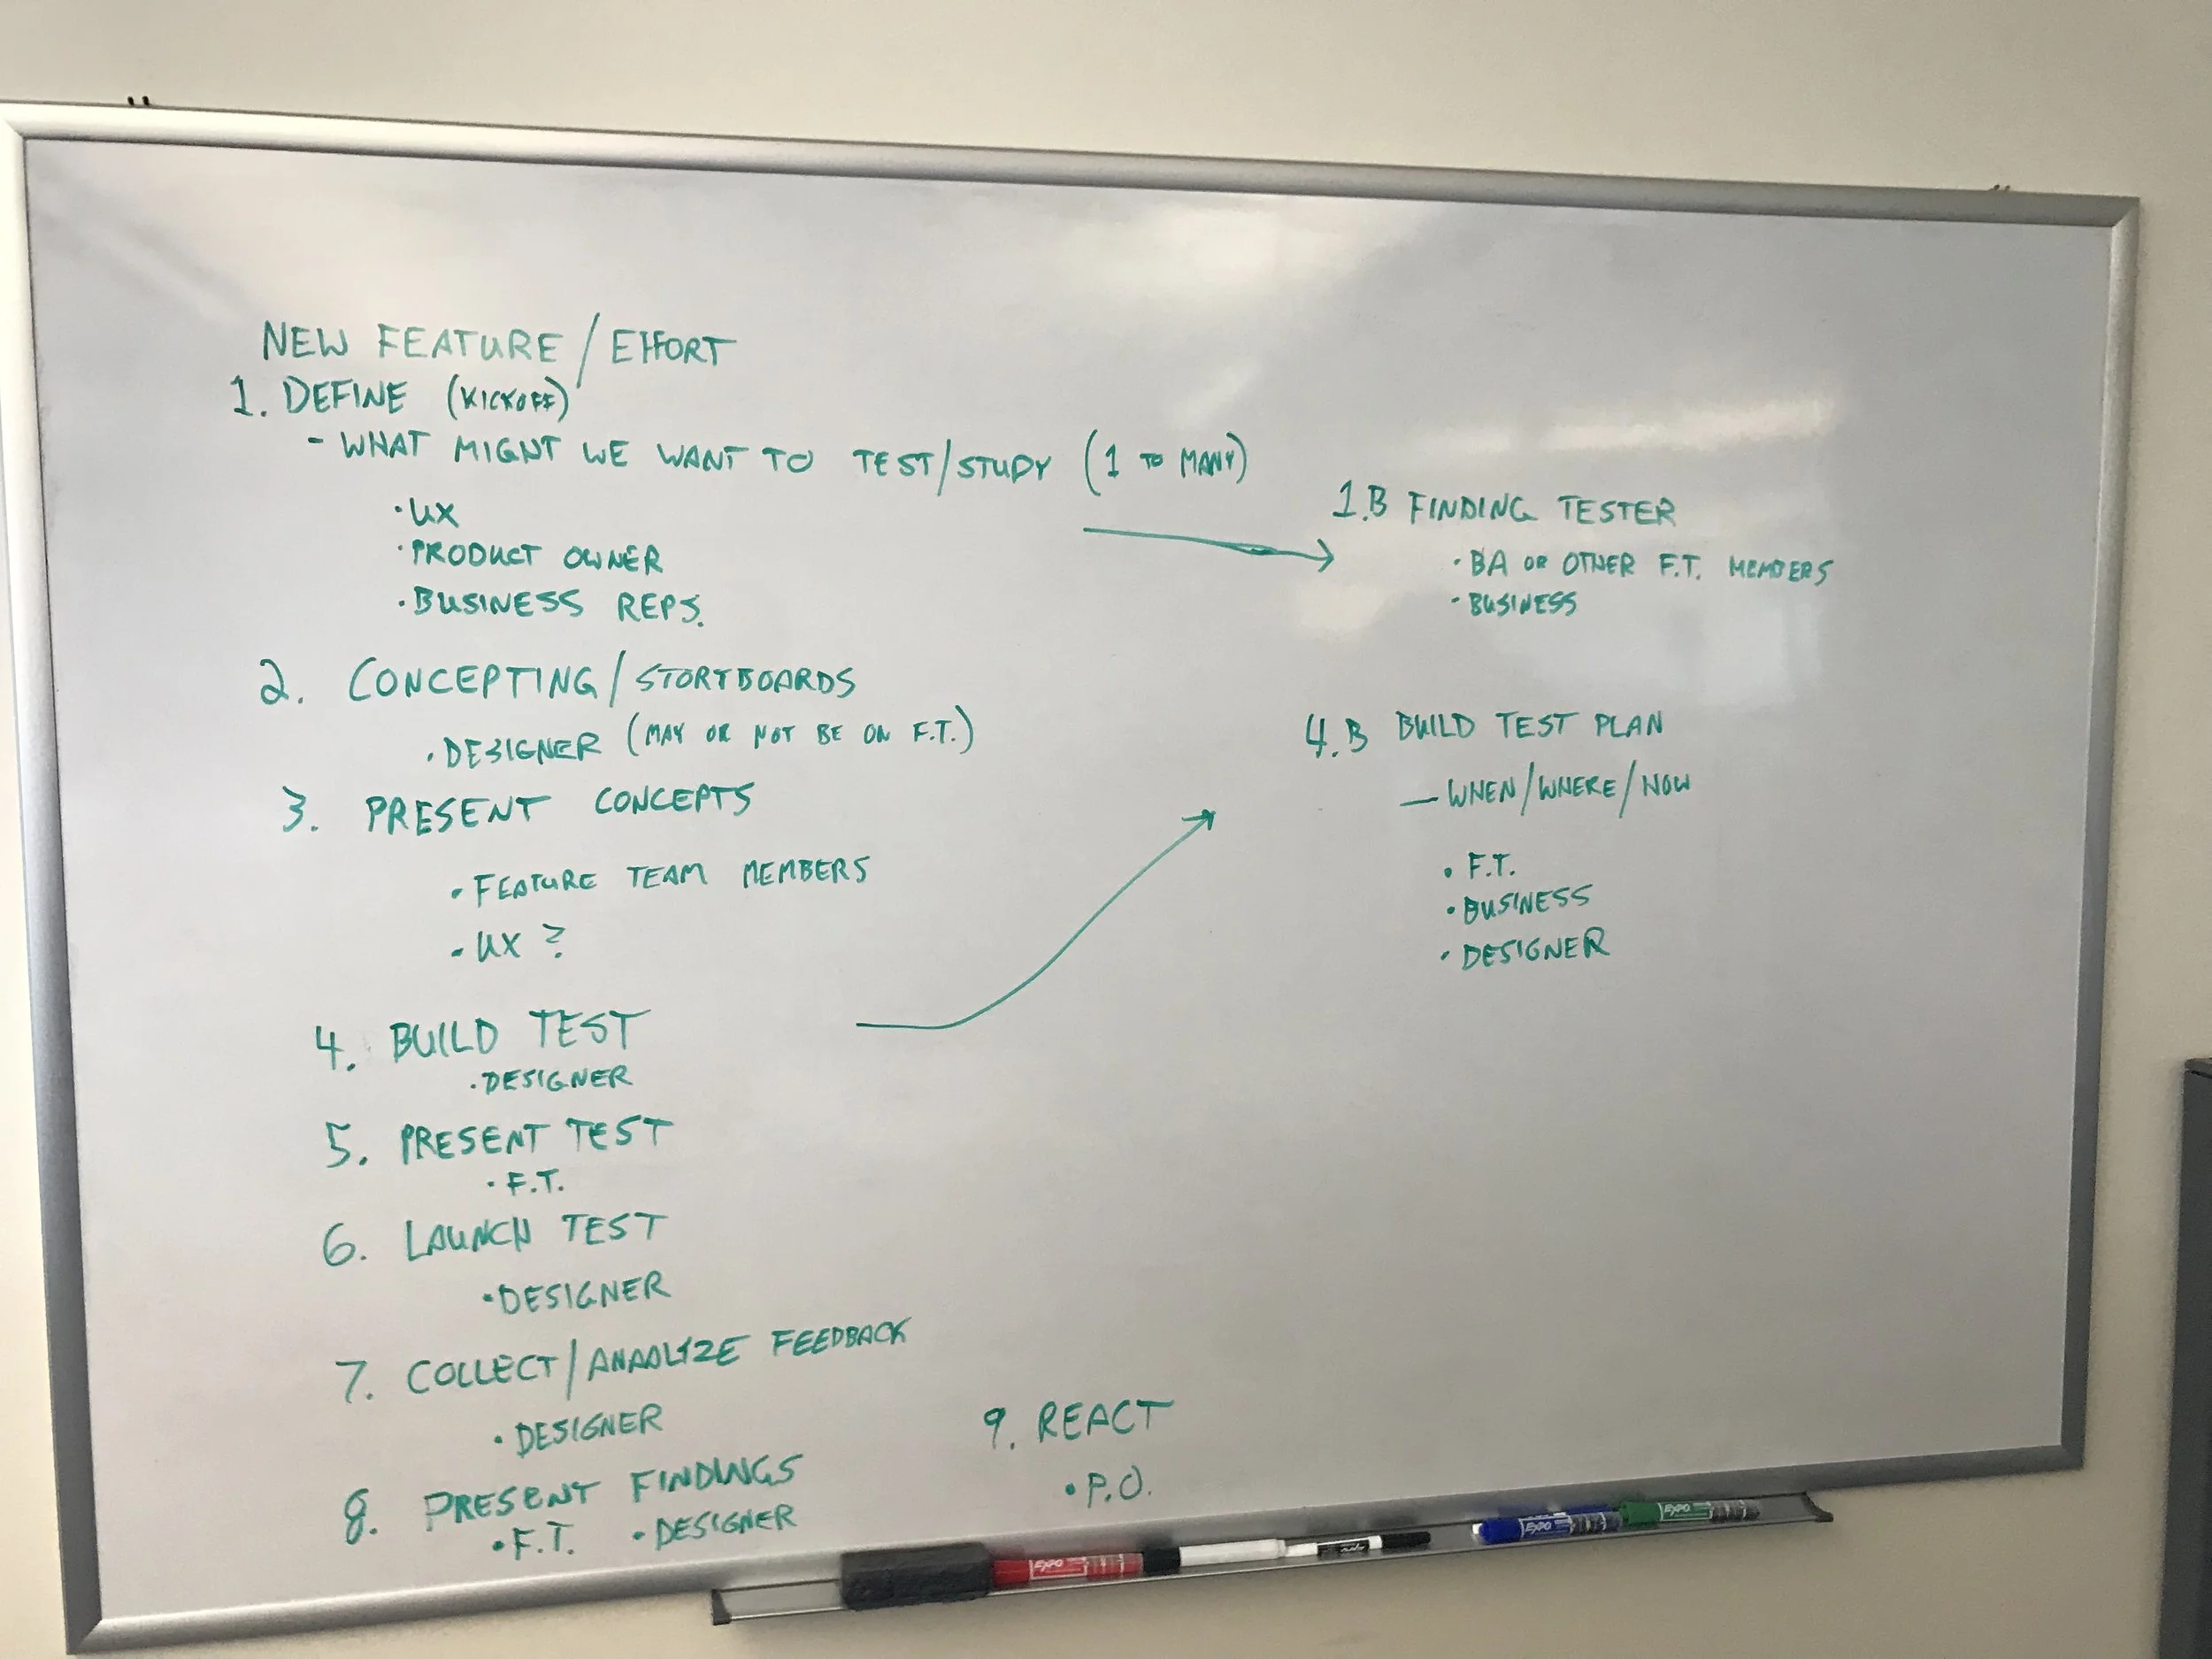 NEW FEATURE / EFFORT
1. DEFINE (KICKOFF)
- WHAT MIGHT WE WANT TO TEST/STUDY (1 TO MANY)
• UX
• PRODUCT OWNER
• BUSINESS REPS.
2. CONCEPTING / STORYBOARDS
• DESIGNER (MAY OR NOT BE ON F.T.)
3. PRESENT CONCEPTS
• FEATURE TEAM MEMBERS
• UX ?
4. BUILD TEST
• DESIGNER
5. PRESENT TEST
• F.T.
6. LAUNCH TEST
• DESIGNER
7. COLLECT / ANAOLYZE FEEDBACK
• DESIGNER
8. PRESENT FINDINGS
• F.T. • DESIGNER
9. REACT
• P.O.
1.B FINDING TESTER
• BA OR OTHER F.T. MEMBERS
• BUSINESS
4.B BUILD TEST PLAN
— WHEN/WHERE/HOW
• F.T.
• BUSINESS
• DESIGNER
EXPO
EXPO
EXPO